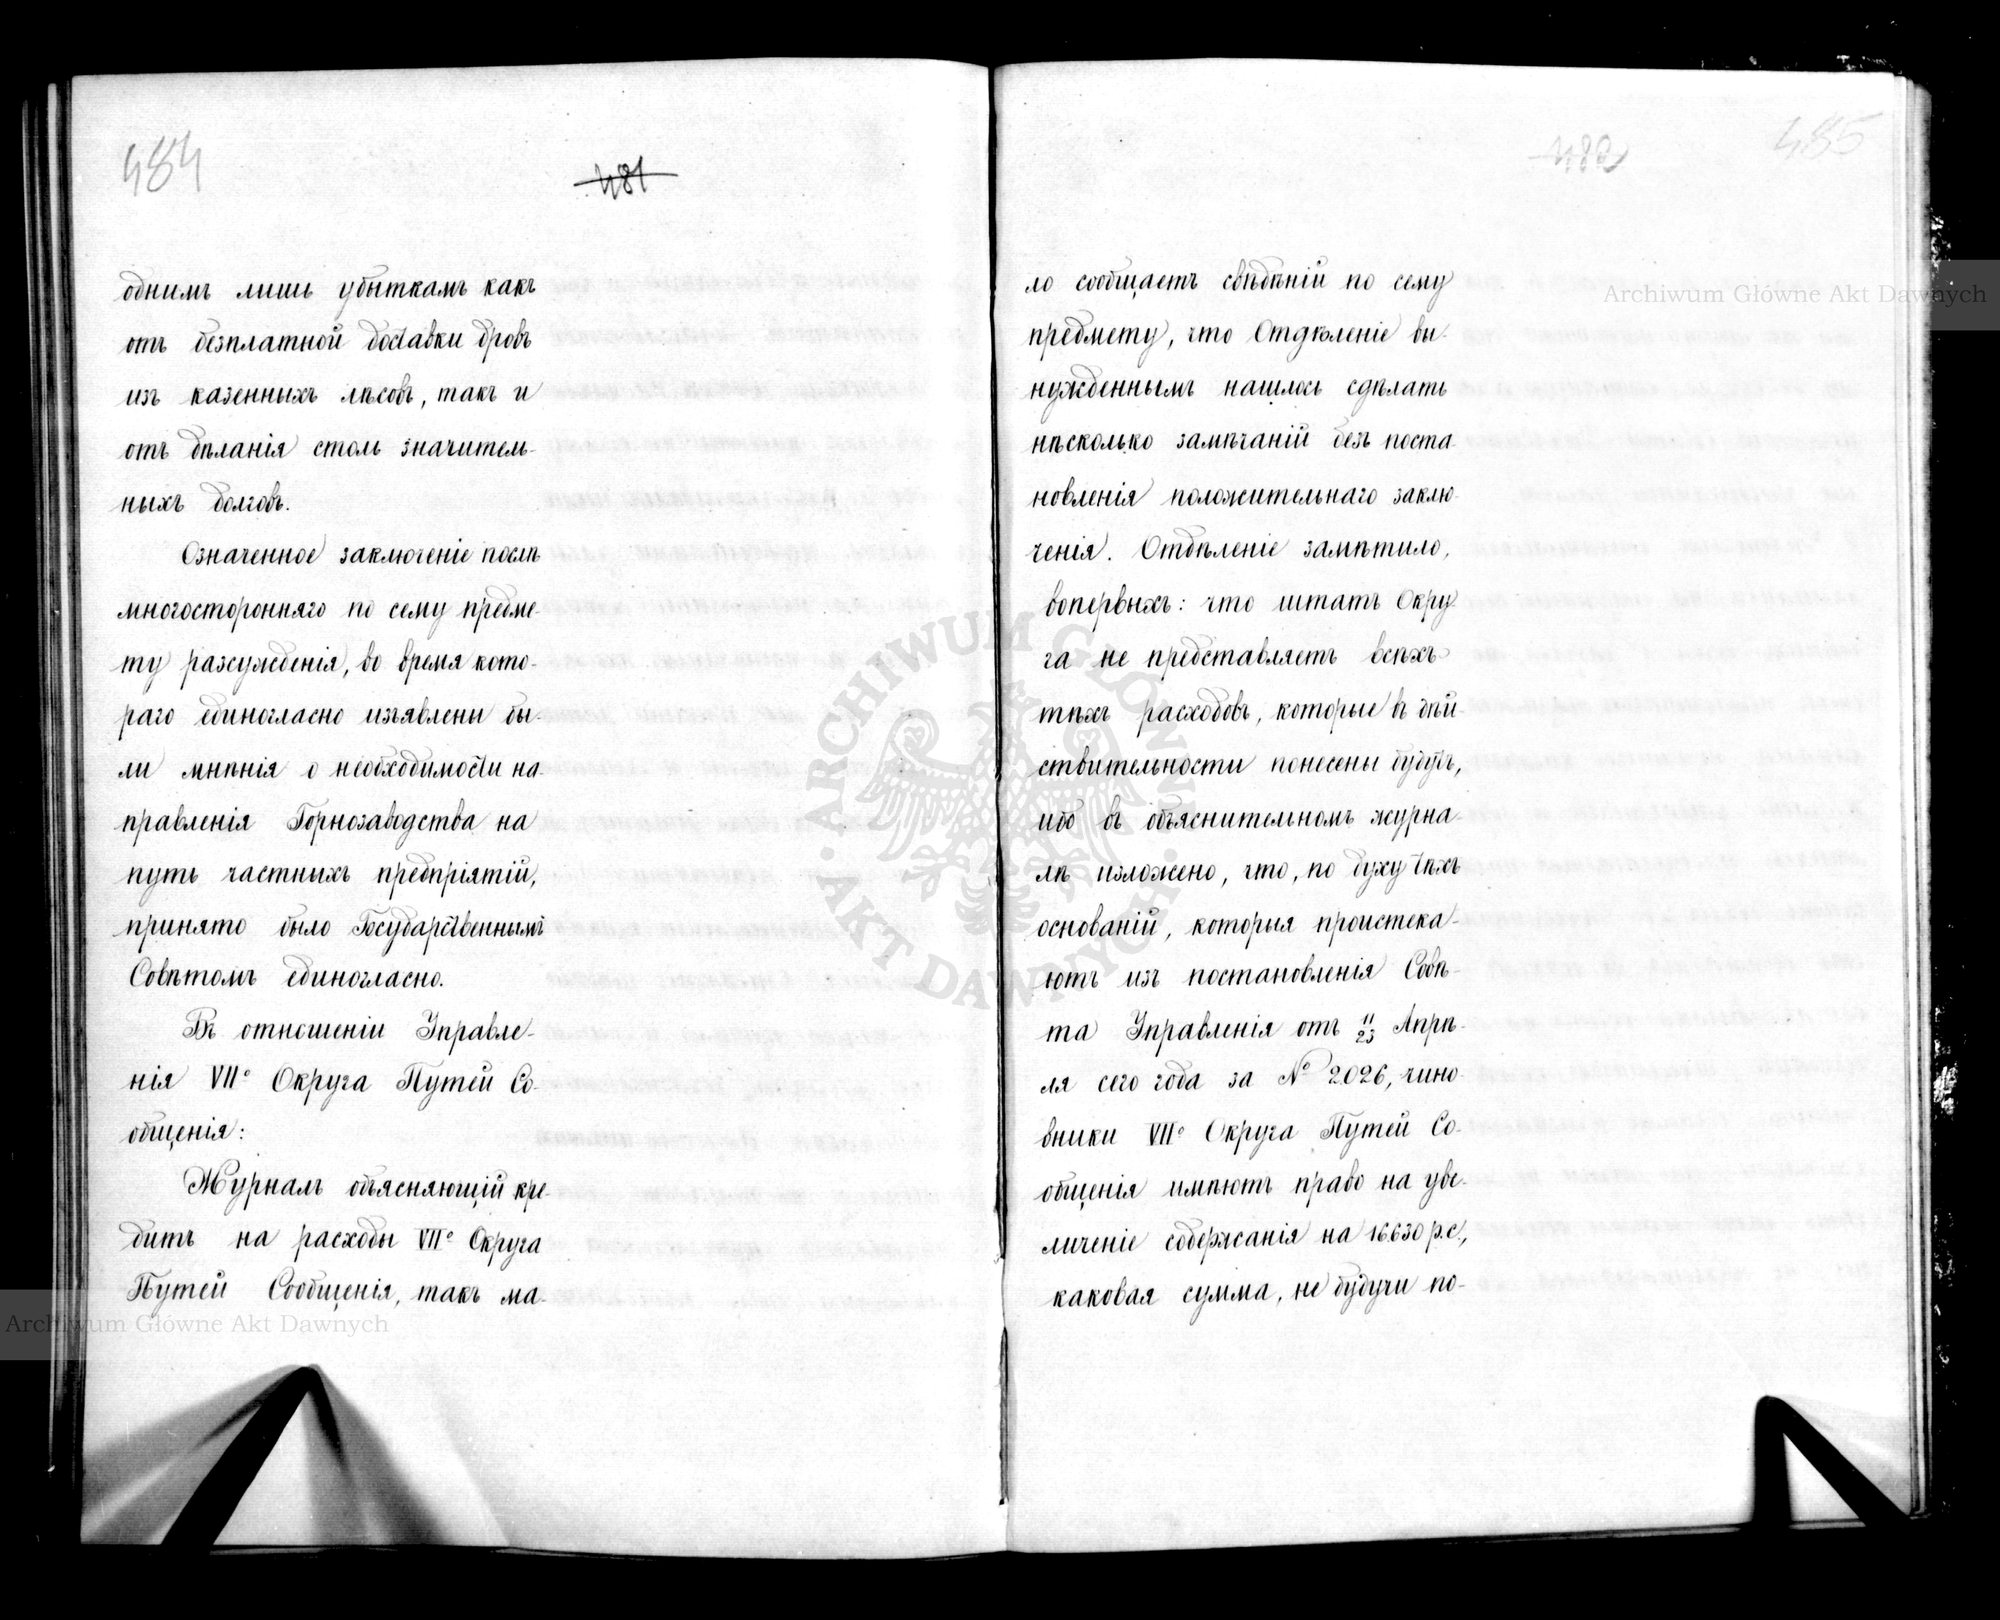 484
481
однимъ лишь убыткамъ какъ
отъ безплатной доставки дровъ
изъ казенныхъ лѣсовъ, такъ и
отъ дѣланія столь значитель-
ныхъ долговъ.
Означенное заключеніе послѣ
многосторонняго по сему предме-
ту разсужденія, во время кото-
раго единогласно изъявлены бы-
ли мнѣнія о необходимости на-
правленія Горнозаводства на
путь частныхъ предпріятій,
принято было Государственнымъ
Совѣтомъ единогласно.
Въ отношеніи Управле-
нія VIIº Округа Путей Со-
общенія:
Журналъ объясняющій кре-
дитъ на расходы VIIº Округа
Путей Сообщенія, такъ ма-
485
482
ло сообщаетъ свѣдѣній по сему
предмету, что Отдѣленіе вы-
нужденнымъ нашлось сдѣлать
нѣсколько замѣчаній безъ поста-
новленія положительнаго заклю-
ченія. Отдѣленіе замѣтило,
вопервыхъ: что штатъ Окру-
га не представляетъ всѣхъ
тѣхъ расходовъ, которые въ дѣй-
ствительности понесены будутъ,
ибо въ объяснительномъ журна-
лѣ изложено, что, по духу тѣхъ
основаній, которыя проистека-
ютъ изъ постановленія Совѣ-
та Управленія отъ 11/23 Апрѣ-
ля сего года за № 2026, чино-
вники VIIº Округа Путей Со-
общенія имѣютъ право на уве-
личеніе содержанія на 16.630 р.с.,
каковая сумма, не будучи по-
Archiwum Główne Akt Dawnych
Archiwum Główne Akt Dawnych
ARCHIWUM GŁÓWNE AKT DAWNYCH